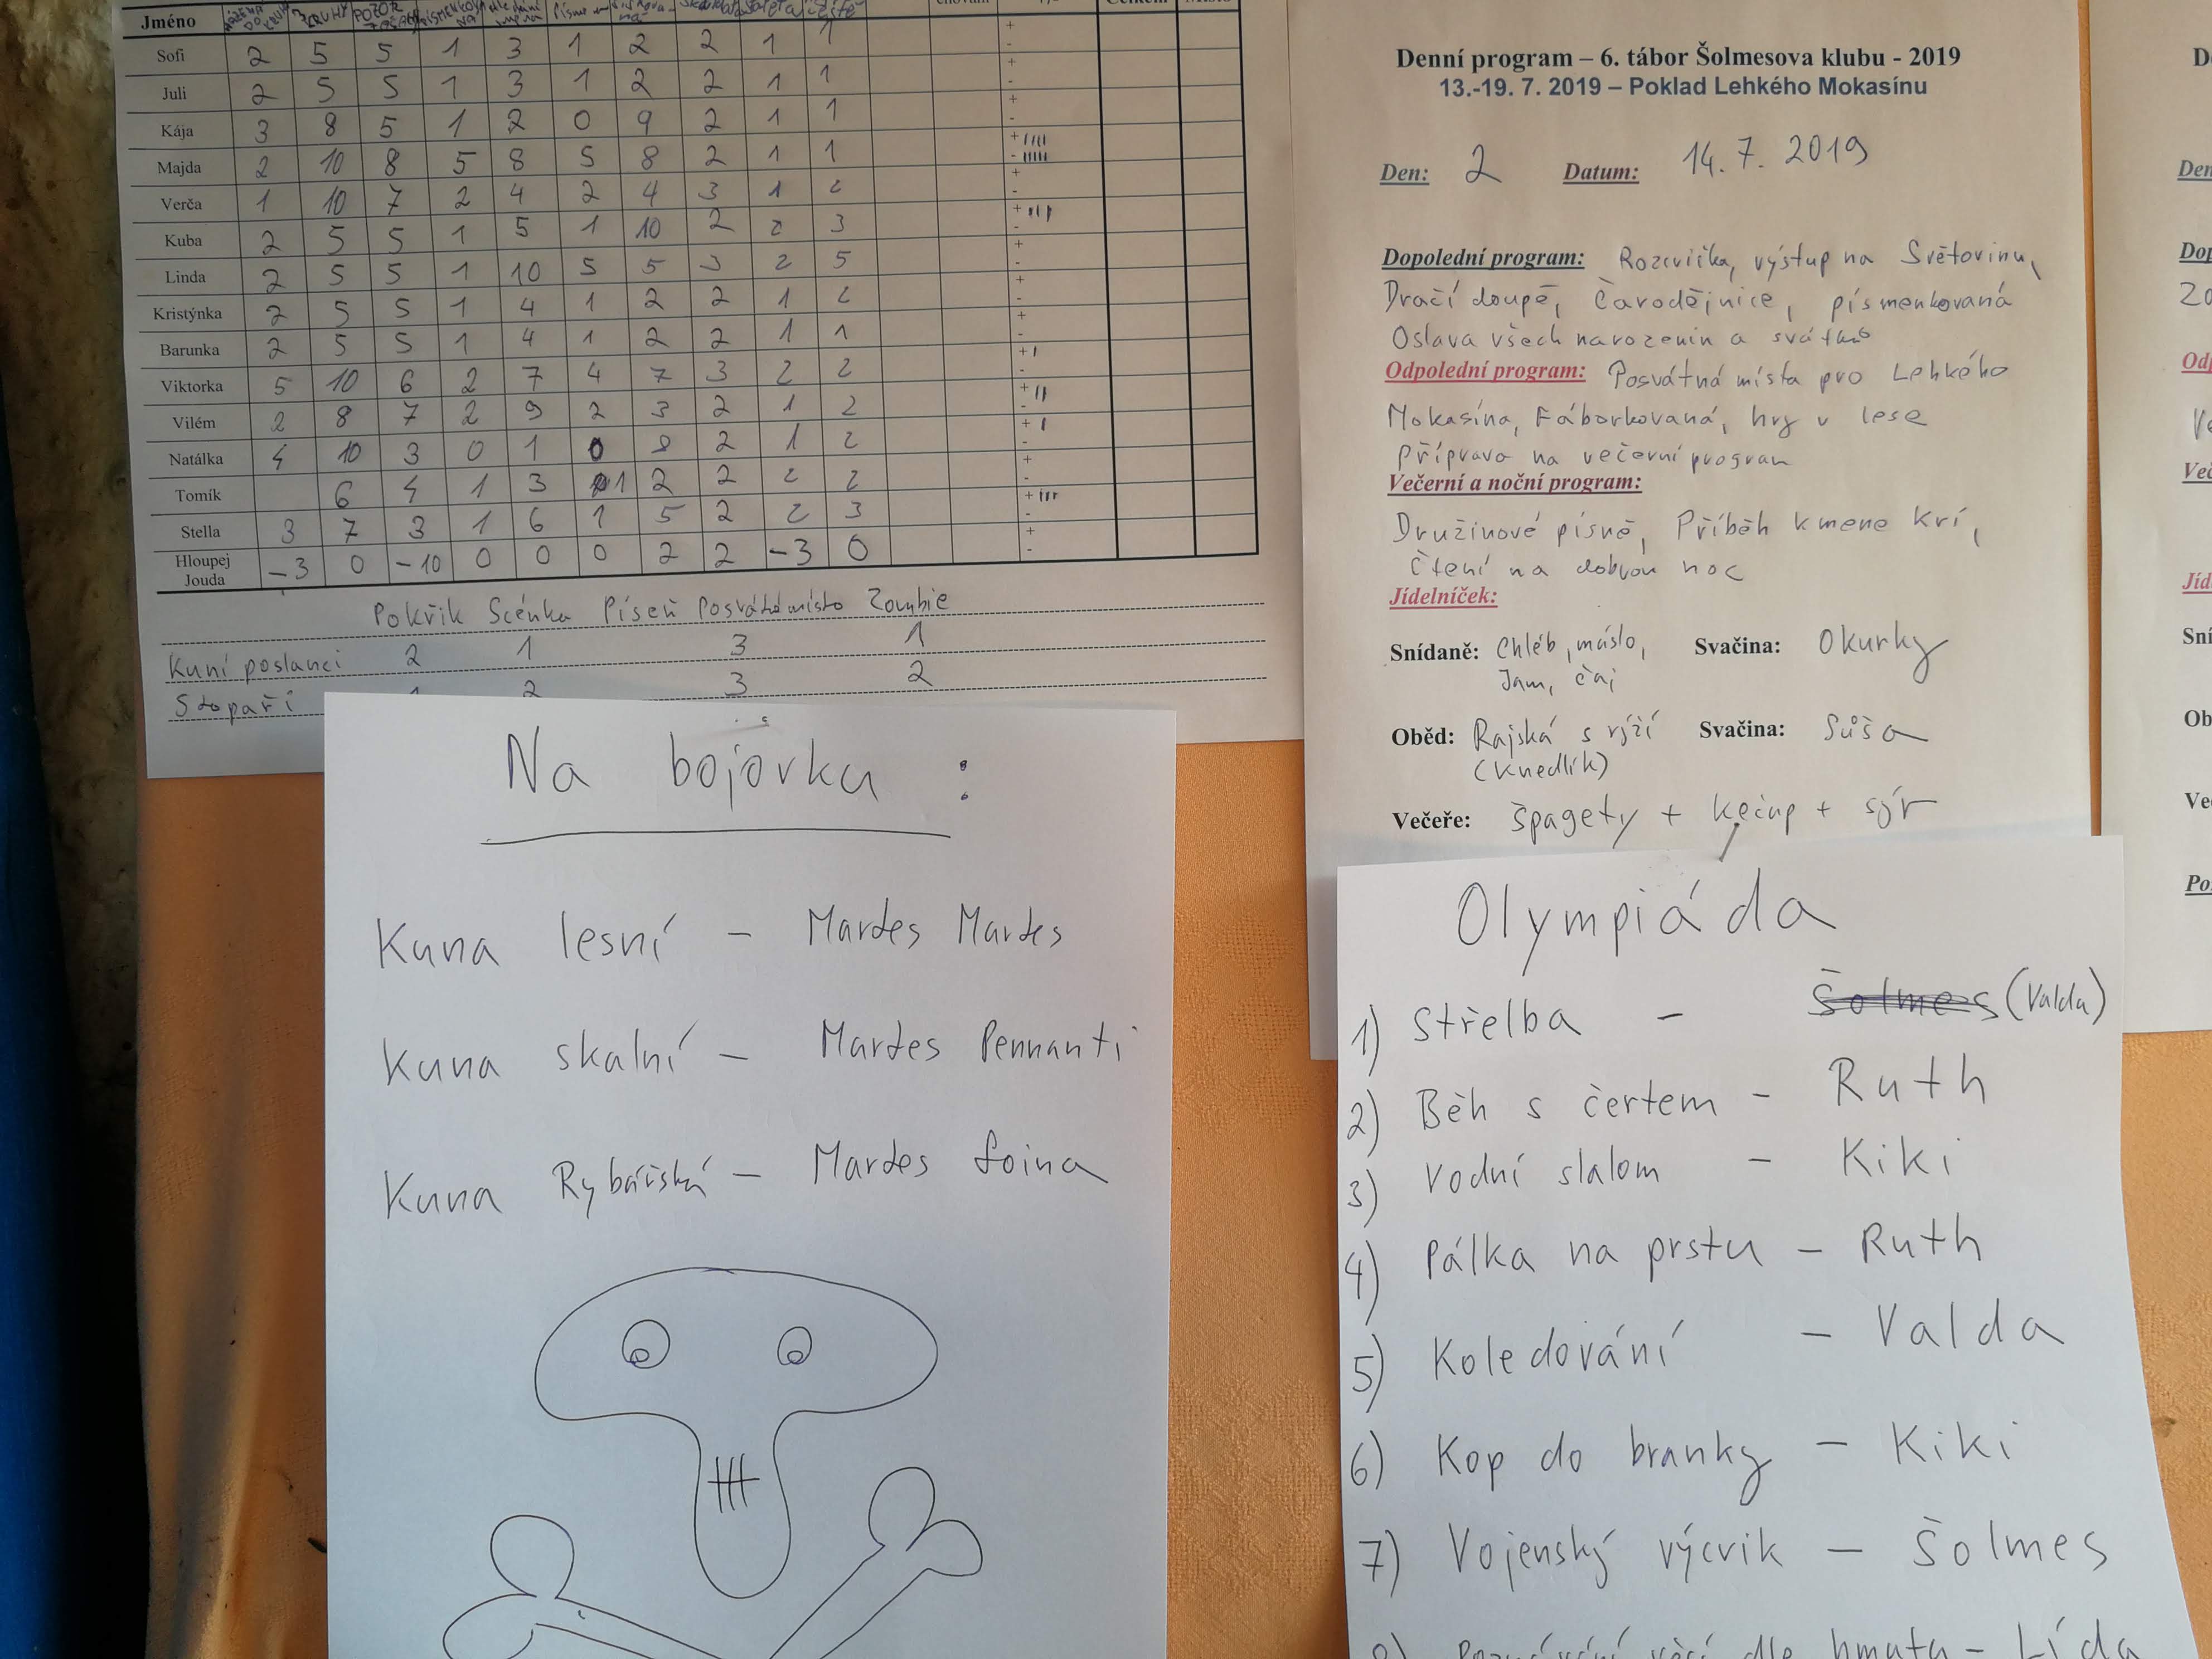 Jméno
Sofi 2 5 5 1 3 1 2 2 1 1
Juli 2 5 5 1 3 1 2 2 1 1
Kája 3 8 5 1 2 0 9 2 1 1
Majda 2 10 8 5 8 5 8 2 1 1
Verča 1 10 7 2 4 2 4 3 1 2
Kuba 2 5 5 1 5 1 10 2 2 3
Linda 2 5 5 1 10 5 5 3 2 5
Kristýnka 2 5 5 1 4 1 2 2 1 2
Barunka 2 5 5 1 4 1 2 2 1 1
Viktorka 5 10 6 2 7 4 7 3 2 2
Vilém 2 8 7 2 9 2 3 2 1 2
Natálka 4 10 3 0 1 0 8 2 1 2
Tomík 6 4 1 3 1 2 2 2 2
Stella 3 7 3 1 6 1 5 2 2 3
Hloupej
Jouda -3 0 -10 0 0 0 2 2 -3 0
Pokřik Scénka Píseň Posvátné místo Zombie
Kuní poslanci 2 1 3 1
Stopaři 2 3 2
Na bojovku :
Kuna lesní - Martes Martes
Kuna skalní - Martes Pennanti
Kuna Rybářská - Martes foina
Denní program – 6. tábor Šolmesova klubu - 2019
13.-19. 7. 2019 – Poklad Lehkého Mokasínu
Den: 2 Datum: 14. 7. 2019
Dopolední program: Rozcvička, výstup na Světovinu,
Dračí doupě, Čarodějnice, písmenkovaná
Oslava všech narozenin a svátků
Odpolední program: Posvátná místa pro Lehkého
Mokasína, Fáborkovaná, hry v lese
Příprava na večerní program
Večerní a noční program:
Družinové písně, Příběh kmene Krí,
Čtení na dobrou noc
Jídelníček:
Snídaně: Chléb, máslo, Svačina: Okurky
Jam, čaj
Oběd: Rajská s rýží Svačina: Sůša
(Knedlík)
Večeře: Špagety + kečup + sýr
Olympiáda
1) Střelba - Šolmes (Valda)
2) Běh s čertem - Ruth
3) Vodní slalom - Kiki
4) Pálka na prstu - Ruth
5) Koledování - Valda
6) Kop do branky - Kiki
7) Vojenský výcvik - Šolmes
Poznávání věcí dle hmatu - Lída